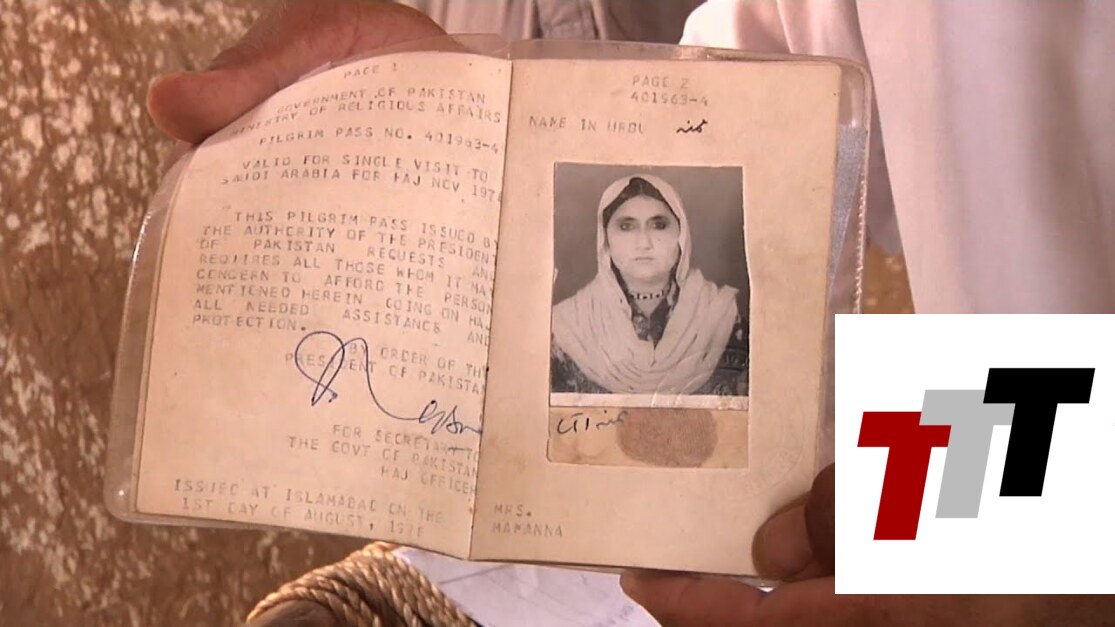 PAGE 1
GOVERNMENT OF PAKISTAN
MINISTRY OF RELIGIOUS AFFAIRS
PILGRIM PASS NO. 401963-4
VALID FOR SINGLE VISIT TO
SAUDI ARABIA FOR HAJ NOV 197
THIS PILGRIM PASS ISSUED BY
THE AUTHORITY OF THE PRESIDENT
OF PAKISTAN REQUESTS AND
REQUIRES ALL THOSE WHOM IT MAY
CONCERN TO AFFORD THE PERSON
MENTIONED HEREIN GOING ON HAJ
ALL NEEDED ASSISTANCE AND
PROTECTION.
BY ORDER OF THE
PRESIDENT OF PAKISTAN
FOR SECRETARY TO
THE GOVT OF PAKISTAN
HAJ OFFICER
ISSUED AT ISLAMABAD ON THE
1ST DAY OF AUGUST, 1976
PAGE 2
401963-4
NAME IN URDU
MRS.
MAMANNA
TTT